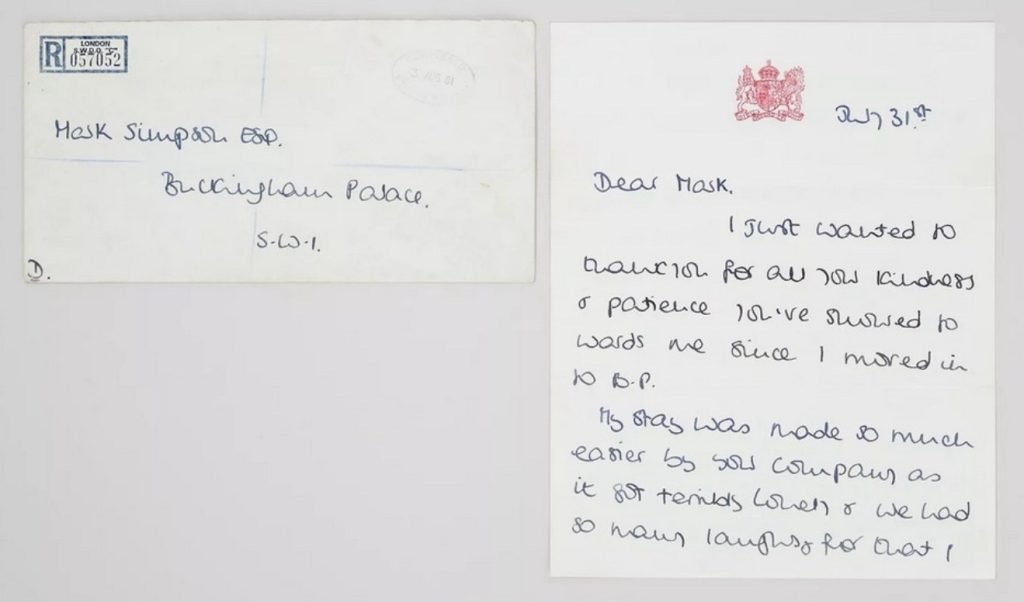 R
LONDON
S.W.D.O.
057052
3 AUG 81
Mark Simpson ESQ.
Buckingham Palace.
S.W.1.
D.
July 31st
Dear Mark.
I just wanted to
thank you for all your kindness
& patience you've showed to
wards me since I moved in
to B.P.
My stay was made so much
easier by your company as
it got terribly lonely & we had
so many laughs, for that I